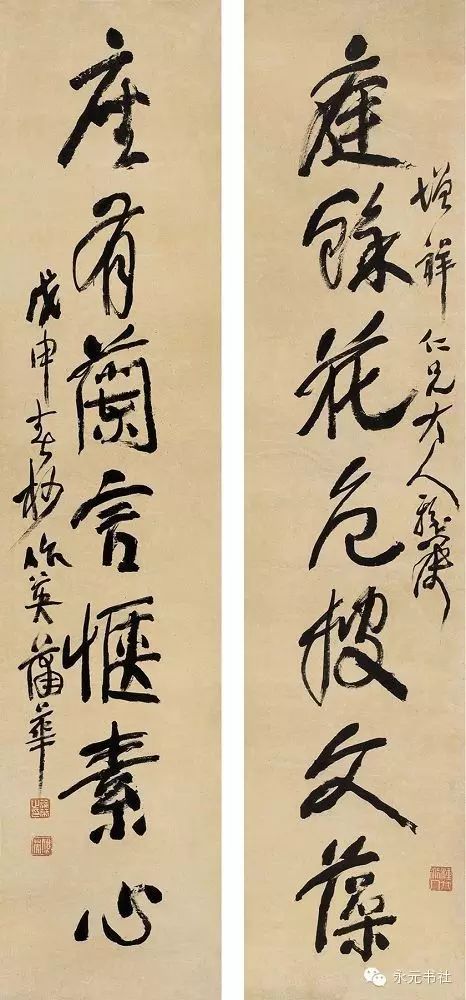 增祥仁兄大人雅屬
庭餘花色披文藻
座有蘭言愜素心
戊申春杪作英蒲華
永元书社